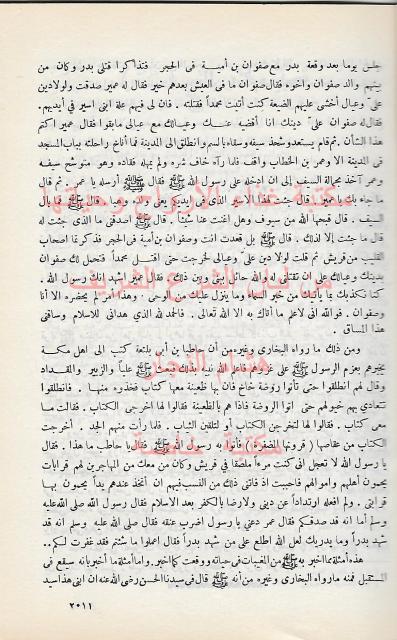 جلس يوما بعد وقعة بدر مع صفوان بن أمية فى الحجر فتذاكرا قتلى بدر وكان من
بينهم والد صفوان واخوه فقال صفوان ما فى العيش بعدهم خير فقال له عمير صدقت ولولا دين
علىّ وعيال أخشى عليهم الضيعة كنت أتيت محمداً فقتلته . فان لى فيهم علة ابنى اسير فى أيديهم.
فقال له صفوان علىّ دينك انا أقضيه عنك وعيالك مع عيالى مابقوا فقال عمير اكتم
هذا الشأن . ثم قام يستعد وشحذ سيفه وسقاه بالسم وانطلق الى المدينة فما أناخ راحلته بباب المسجد
فى المدينة الا وعمر بن الخطاب واقف فلما رآه خاف شره ولم يمهله فقاده وهو متوشح سيفه
وعمر آخذ بحمالة السيف إلى ان ادخله على رسول الله ﷺ فقال ﷺ أرسله يا عمر . ثم قال
ما جاء بك يا عمير . قال جئت لهذا الاسير الذى فى ايديكم يعنى ولده وهبا . قال ﷺ فما بال
السيف . قال قبحها الله من سيوف وهل اغنت عنا شيئا . قال ﷺ اصدقنى ما الذى جئت له
قال ما جئت إلا لذلك . قال ﷺ بل قعدت انت وصفوان بن أمية فى الحجر فذكرتما اصحاب
القليب من قريش ثم قلت لولا دين علىّ وعيالى لخرجت حتى اقتـــل محمداً فتحمل لك صفوان
بدينك وعيالك على ان تقتلنى له والله حائل بينى وبين ذلك . فقال عمير اشهد انك رسول الله .
كنا نكذبك بما يأتيك من خبر السماء وما ينزل عليك من الوحى . وهذا امر لم يحضره الا أنا
وصفوان . فو الله انى لأعلم ما أتاك به الا الله تعالى . فالحمد لله الذى هدانى للاسلام وساقنى
هذا المساق .
ومن ذلك ما رواه البخارى وغيره من أن حاطب بن أبى بلتعة كتب الى اهل مكة
يخبرهم بعزم الرسول ﷺ على غزوهم فاعلم الله نبيه بذلك فبعث ﷺ علياً والزبير والمقداد
وقال لهم انطلقوا حتى تأتوا روضة خاخ فان بها ظعينة معها كتاب فخذوه منهـــا . فانطلقوا
تتعادى بهم خيولهم حتى اتوا الروضة فاذا هم بالظعينة فقالوا لها اخرجى الكتاب . فقالت ما
معى كتاب . فقالوا لها لتخرجن الكتاب أو لتلقين الثياب . فلما رأت منهم الجد . أخرجت
الكتاب من عقاصها ( قرونها المضفرة ) فأتوا به رسول الله ﷺ فقال يا حاطب ما هذا . فقال
يا رسول الله لا تعجل انى كنت مرءاً ملصقا فى قريش وكان من معك من المهاجرين لهم قرابات
يحمون أهليهم واموالهم فاحببت اذ فاتنى ذلك من النسب فيهم ان أتخذ عندهم يداً يحمون بها
قرابتى . ولم افعله ارتداداً عن دينى ولا رضا بالكفر بعد الاسلام فقال رسول الله صلى الله عليه
وسلم أما انه قد صدقكم فقال عمر دعنى يا رسول اضرب عنقه فقال صلى الله عليه وسلم انه قد
شهد بدراً وما يدريك لعل الله اطلع على من شهد بدراً فقال اعملوا ما شئتم فقد غفرت لكم ..
هذه أمثلة بما اخبر به ﷺ من المغيبات فى حياته ووقعت كما اخبر. واما أمثلة ما أخبر بانه سيقع فى
المستقبل فمنه ما رواه البخارى وغيره من أنه ﷺ قال فى سيدنا الحسن رضى الله عنه ان ابنى هذا سيد
٢٠١١